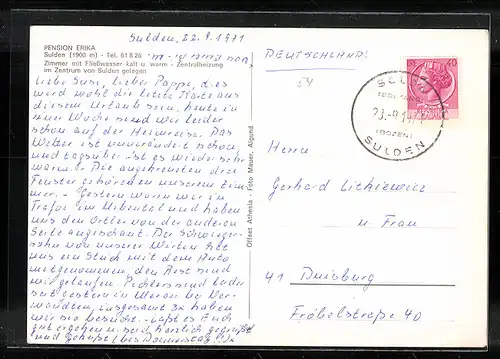 Sulden, 22.9.1971
PENSION ERIKA
Sulden (1900 m) - Tel. 61826
Zimmer mit Fließwasser kalt u warm - Zentralheizung
im Zentrum von Sulden gelegen
Liebe Susi, lieber Pappe, dies
wird wohl die letzte Karte aus
diesem Urlaub sein, heute in
einer Woche sind wir leider
schon auf der Heimreise. Das
Wetter ist unverändert schön
und tagsüber ist es wieder sehr
warm. Die angekreuzten drei
Fenster gehören zu unserem Zim-
mer. Gestern waren wir in
Trafoi im und haben
uns den Ortler von der anderen
Seite angeschaut. Der Schwieger-
sohn von unserer Wirtin hat
uns ein Stück mit dem Auto
mitgenommen, den Rest sind
wir gelaufen. sind
seit gestern in Meran bei Ver-
wandten, insgesamt 3x haben
wir sie besucht. Laßt es Euch
gut ergehen u. seid herzlich gegrüßt
und geküßt (bis Donnerstag
Offset Athesia - Foto Mauer, Algund
DEUTSCHLAND!
54
40
SULDEN
23.-9.1971
(BOZEN)
SULDEN
Herrn
Gerhard Litkiewicz
u. Frau
41 Duisburg
Fröbelstraße 40